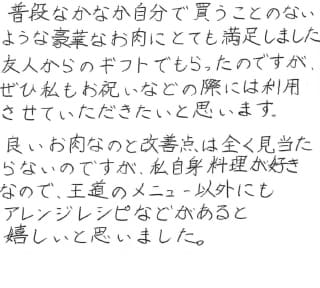 普段なかなか自分で買うことのない
ような豪華なお肉にとても満足しました
友人からのギフトでもらったのですが、
ぜひ私もお祝いなどの際には利用
させていただきたいと思います。
良いお肉なのと改善点は全く見当た
らないのですが、私自身料理が好き
なので、王道のメニュー以外にも
アレンジレシピなどがあると
嬉しいと思いました。